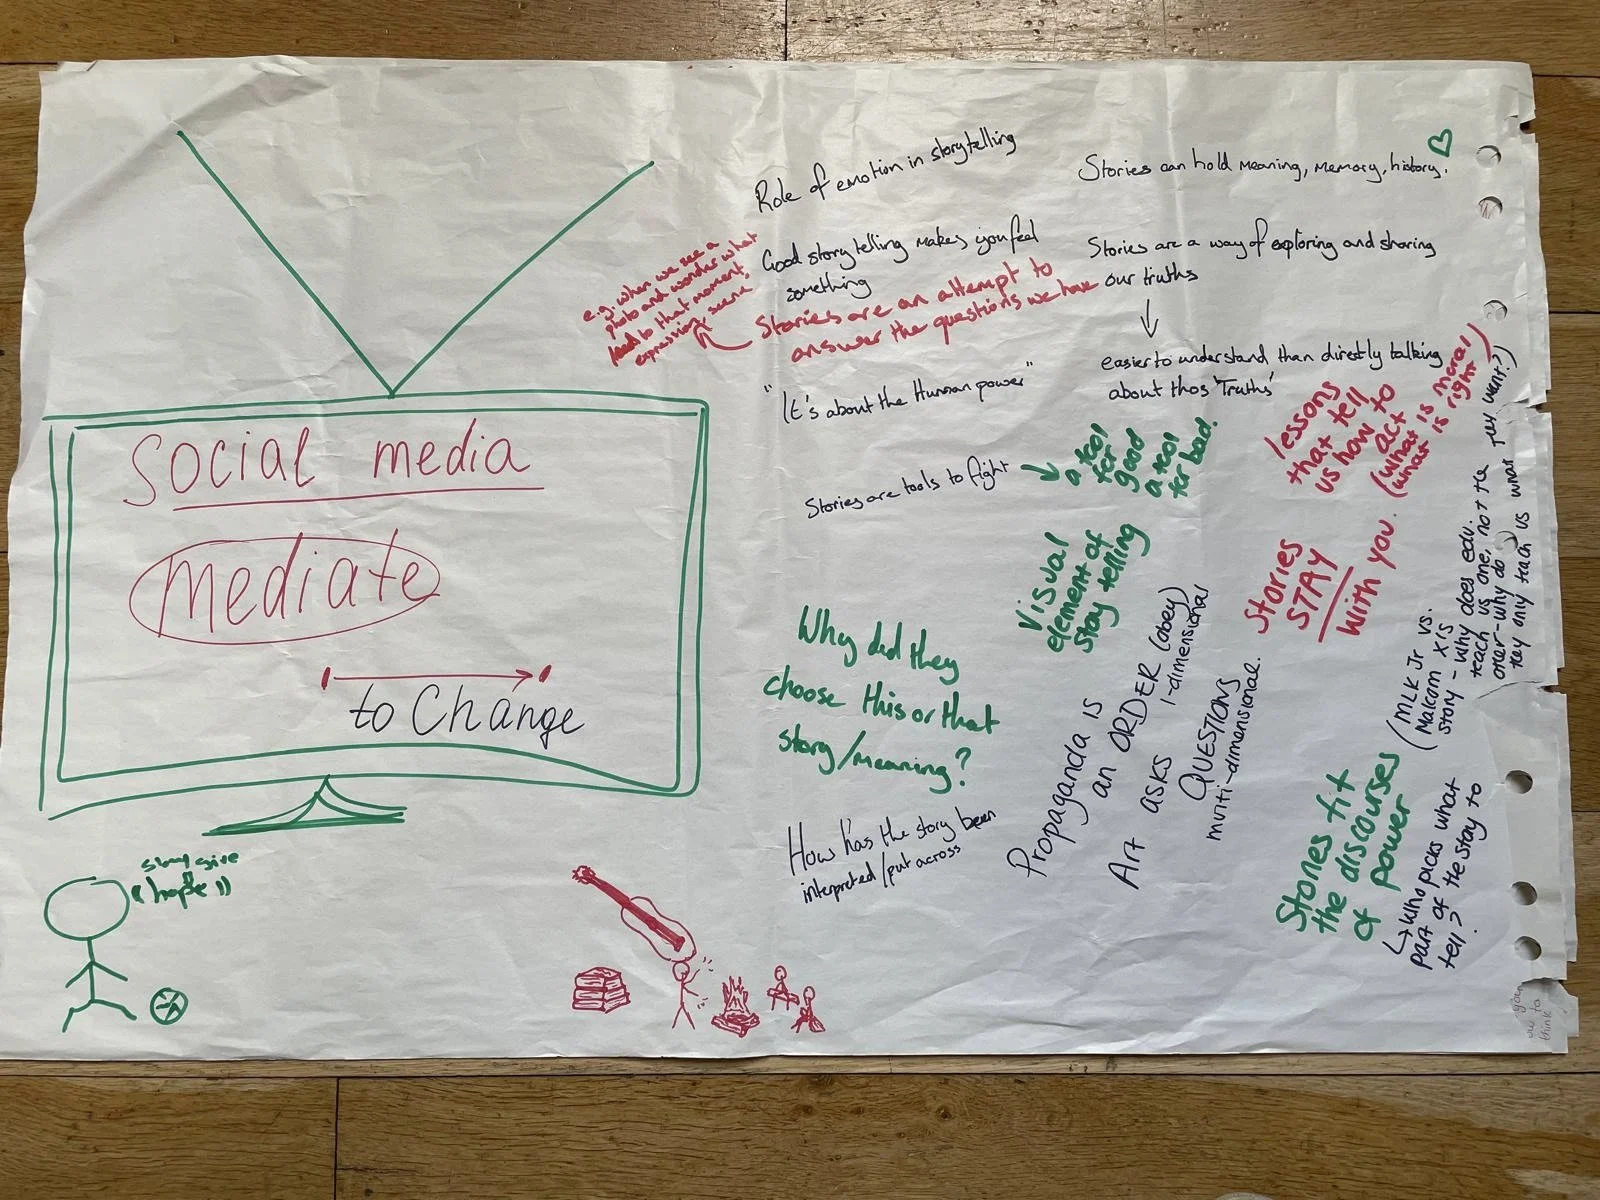 Social media
mediate
to Change
Story give
((hope))
Role of emotion in storytelling
Good storytelling makes you feel
something
Stories are an attempt to
answer the questions we have
e.g. when we see a
photo and wonder what
lead to that moment,
expression, scene
"It's about the Human power"
Stories are tools to fight
a tool
for
good
a tool
for bad.
Stories can hold meaning, memory, history.
Stories are a way of exploring and sharing
our truths
easier to understand than directly talking
about thos 'Truths'
lessons
that tell
us how to
act
(what is moral)
(what is right)
Visual
element of
Stay telling
Stories
STAY
with you.
Why did they
choose this or that
story/meaning?
How has the story been
interpreted/put across
Propaganda is
an ORDER (obey)
1-dimensional
Art asks
QUESTIONS
multi-dimensional.
(MLK Jr vs.
Malcom X's
story - why does edu.
teach us one, not the
other - why do
they only teach us what they want?)
Stories fit
the discourses
of power
who picks what
part of the stay to
tell?
to
think